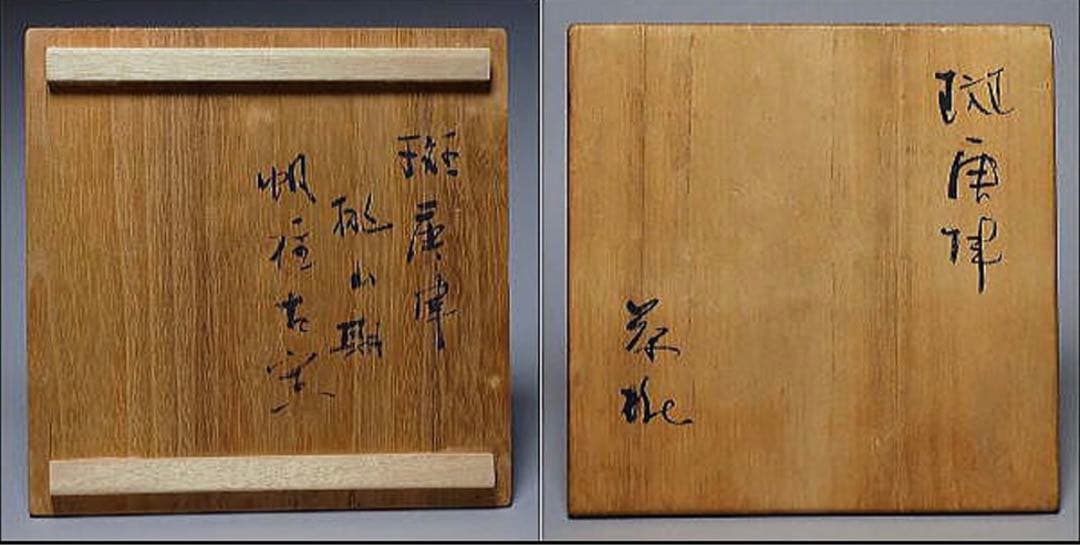 斑唐津
桃山期
帆柱古窯
斑唐津
茶碗